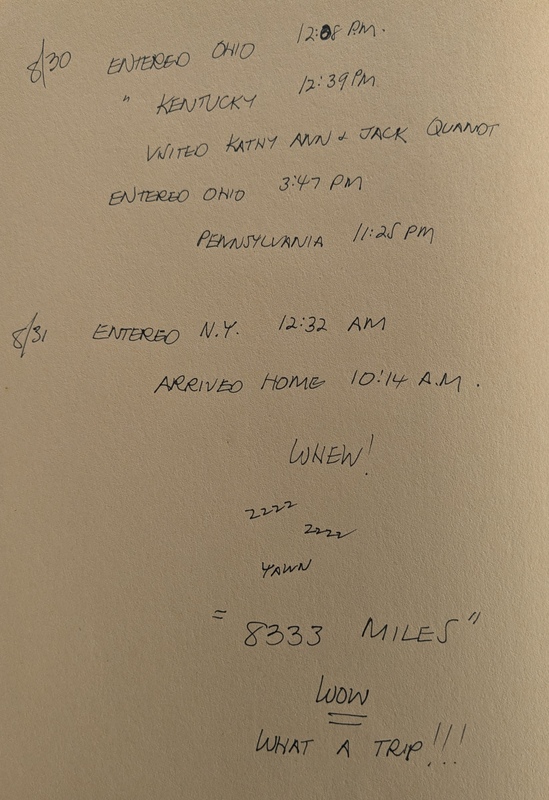 8/30 ENTERED OHIO 12:08 P.M.
" KENTUCKY 12:39 PM
VISITED KATHY ANN & JACK QUANDT
ENTERED OHIO 3:47 PM
PENNSYLVANIA 11:25 PM
8/31 ENTERED N.Y. 12:32 AM
ARRIVED HOME 10:14 A.M.
WHEW!
zzzz
zzzz
YAWN
"8333 MILES"
WOW
WHAT A TRIP!!!